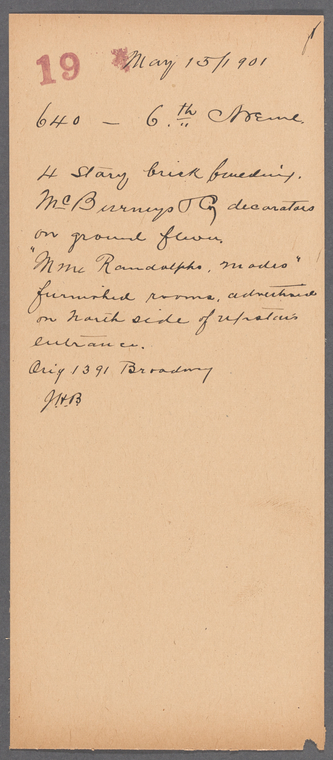 19
May 15/1901
640 — 6.th Avenue
4 Story brick building.
McBurneys & Co decorators
on ground floor.
"Mme Randolphs, modes"
furnished rooms, advertised
on North side of upstairs
entrance.
Orig 1391 Broadway
JHB